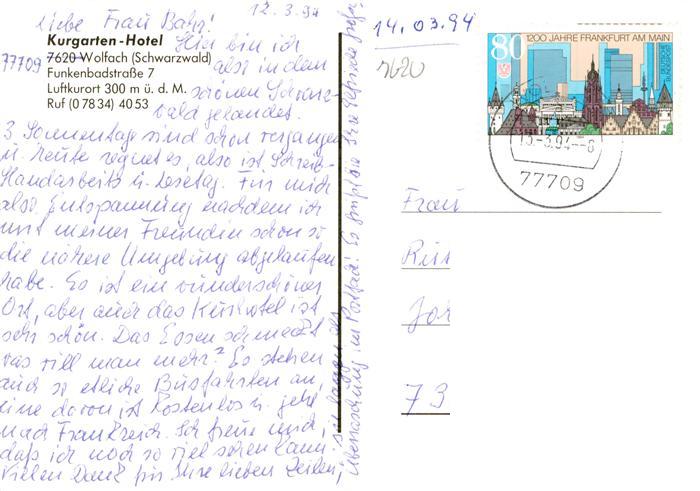 12.3.94
Liebe Frau Bahr!
Kurgarten-Hotel
77709 7620 Wolfach (Schwarzwald)
Funkenbadstraße 7
Luftkurort 300 m ü. d. M.
Ruf (0 78 34) 40 53
Hier bin ich
also in dem
schönen Schwarz-
wald gelandet.
3 Sonnentage sind schon vergangen
u. heute regnet es, also ist Schreib-
Handarbeits u. Lesetag. Für mich
also Entspannung nachdem ich
mit meiner Freundin schon so
die nähere Umgebung abgelaufen
habe. Es ist ein wunderschöner
Ort, aber auch das Kurhotel ist
sehr schön. Das Essen schmeckt
was will man mehr? Es stehen
auch so etliche Busfahrten an,
eine davon ist kostenlos u. geht
nach Frankreich. Ich freue mich,
daß ich noch so viel sehen kann.
Vielen Dank für Ihre lieben Zeilen,
sie lagen als
Überraschung im Postfach! Es
14.03.94
7620
80 1200 JAHRE FRANKFURT AM MAIN
DEUTSCHE BUNDESPOST
13.-3.94--8
77709
Frau
Rut
Jor
73